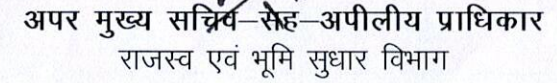 अपर मुख्य सचिव–सह–अपीलीय प्राधिकार
राजस्व एवं भूमि सुधार विभाग